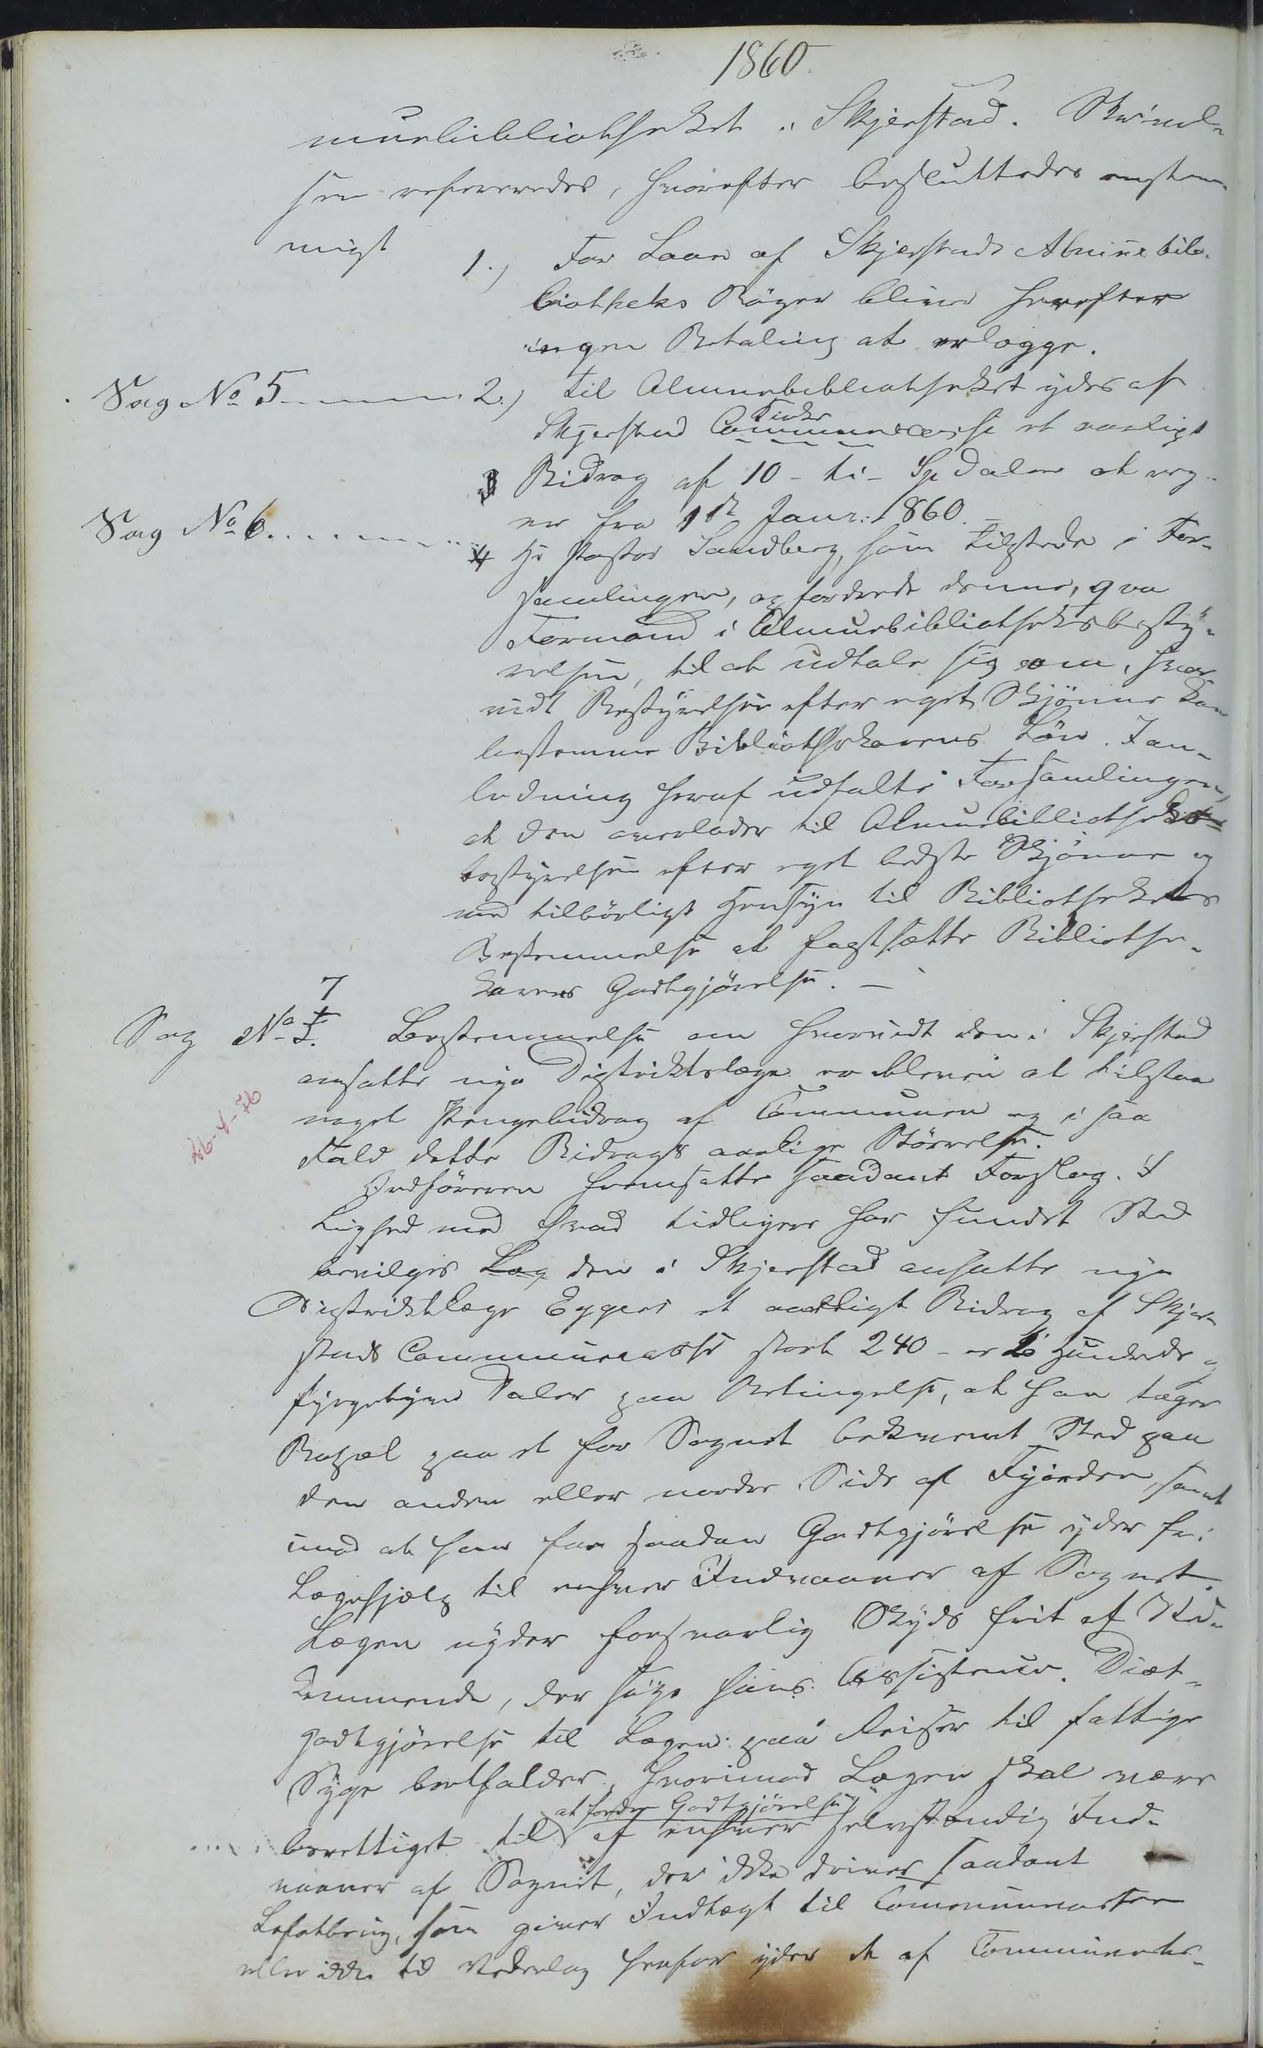 1860.
muebibliotheket i Skjerstad. Skrivel-
sen refereredes, hvorefter besluttedes enstem-
migt
1.) For Laan af Skjerstads Almuebib-
liotheks Bøger bliver herefter
ingen Betaling at erlægge.
Sag No 5 2.) Til Almuebibliotheket ydes af
Skjerstad Communecasse et aarligt
Bidrag af 10 - ti - Spdaler at reg-
Sag No 6 ne fra 1ste Janr: 1860.
Hr Pastor Sandberg, som tilstede i For-
samlingen, opfordrede denne, qva
Formand i Almuebibliotheksbesty-
relsen, til at udtale sig om, hvor-
vidt Bestyrelsen efter eget Skjønne kan
bestemme Bibliothekarens Løn. I an-
ledning heraf udtalte Forsamlingen,
at den overlader til Almuebiblioteks-
bestyrelsen efter eget bedste Skjønne og
med tilbørligt Hensyn til Bibliothekets
Bestemmelse at fastsætte Bibliothe-
karens Godtgjørelse. -
7
Sag No Bestemmelse om hvorvidt den i Skjerstad
ansatte nye Distriktslæge er bleven at tilstaa
noget Pengebidrag af Communen og i saa
26-4-76
Fald dette Bidrags aarlige Størrelse.
Ordføreren fremsatte saadant Forslag. I
Lighed med hvad tidligere har fundet Sted
bevilges Læg den i Skjerstad ansatte nye
Distriktslæge Eggers et aarligt Bidrag af Skjer-
stads Communecasse stort 240 - er to Hundrede og
fyrgetyve Daler paa Betingelse, at han tager
Bopæl paa et for Sognet bekvemt Sted paa
den anden eller nordre Side af Fjorden, samt
imod at han for saadan Godtgjørelse yder fri
Lægehjælp til enhver Indvaaner af Sognet.
Lægen nyder forsvarlig Skyds frit af Ved-
kommende, der søge hans Assistence. Diæt-
godtgjørelse til Lægen paa Reiser til fattige
Syge bortfalder, hvorimod Lægen skal være
at fordre Godtgjørelse
berettiget til af enhver selvstændig Ind-
vaaner af Sognet, der ikke driver saadant
som giver Indtægt til Communecassen
eller ikke til Vederlag herfor yder et af Communens